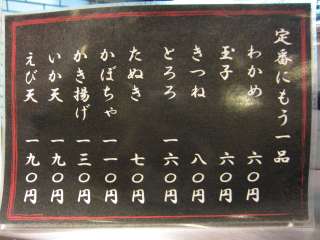 定番にもう一品
わかめ 六〇円
玉子 六〇円
きつね 八〇円
とろろ 一六〇円
たぬき 七〇円
かぼちゃ 一一〇円
かき揚げ 一三〇円
いか天 一九〇円
えび天 一九〇円